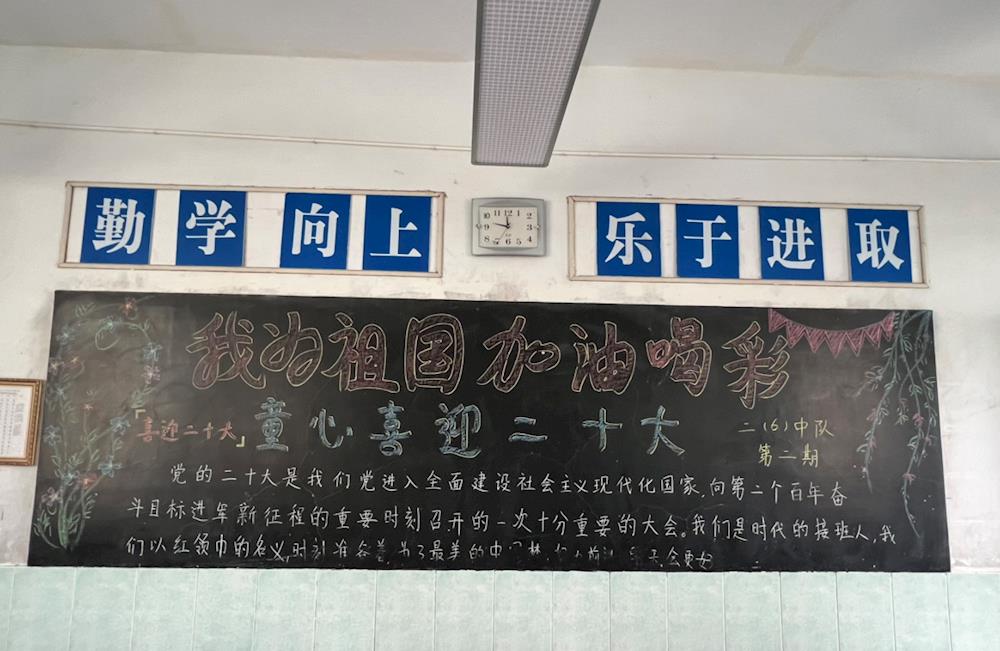 勤学向上
乐于进取
我为祖国加油喝彩
「喜迎二十大」
童心喜迎二十大
二(6)中队
第二期
党的二十大是我们党进入全面建设社会主义现代化国家,向第二个百年奋
斗目标进军新征程的重要时刻召开的一次十分重要的大会。我们是时代的接班人,我
们以红领巾的名义,时刻准备着,为了最美的中国梦